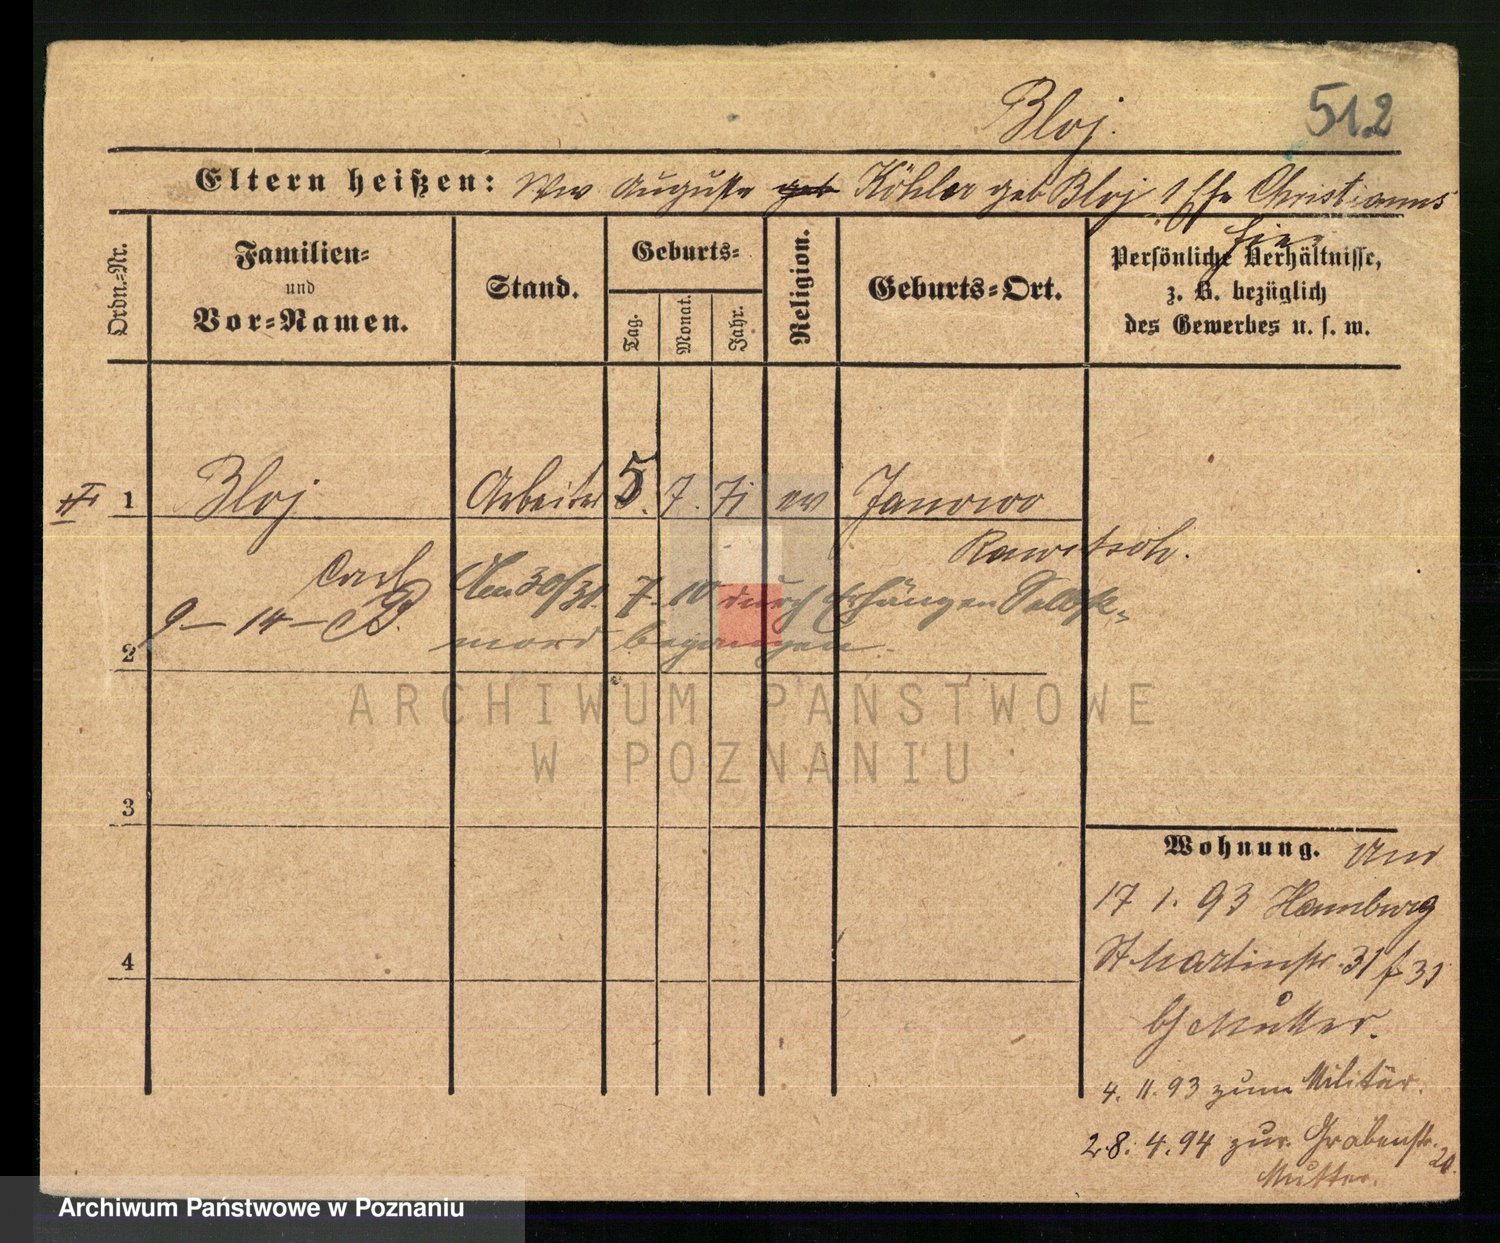 Bloj.
512
Eltern heißen: Wwe Auguste geb Köhler geb Bloj, 1 Ehe Christianus
hier
Ordn.-Nr.
Familien-
und
Vor-Namen.
Stand.
Geburts-
Tag.
Monat.
Jahr.
Religion.
Geburts-Ort.
Persönliche Verhältnisse,
z. B. bezüglich
des Gewerbes u. s. w.
1 Bloj Arbeiter 5. 7. 71 ev Janowo
Rawitsch.
Carl
9 – 14 –
Am 30/31. 7. 10 durch Erhängen Selbst-
mord begangen.
2
3
4
ARCHIWUM PAŃSTWOWE
W POZNANIU
Wohnung.
17 1. 93 Hamburg
St Martinstr. 31
b/ Mutter.
4. 11. 93 zum Militär.
28. 4. 94 zur. Grabenstr. 20.
Mutter.
Archiwum Państwowe w Poznaniu